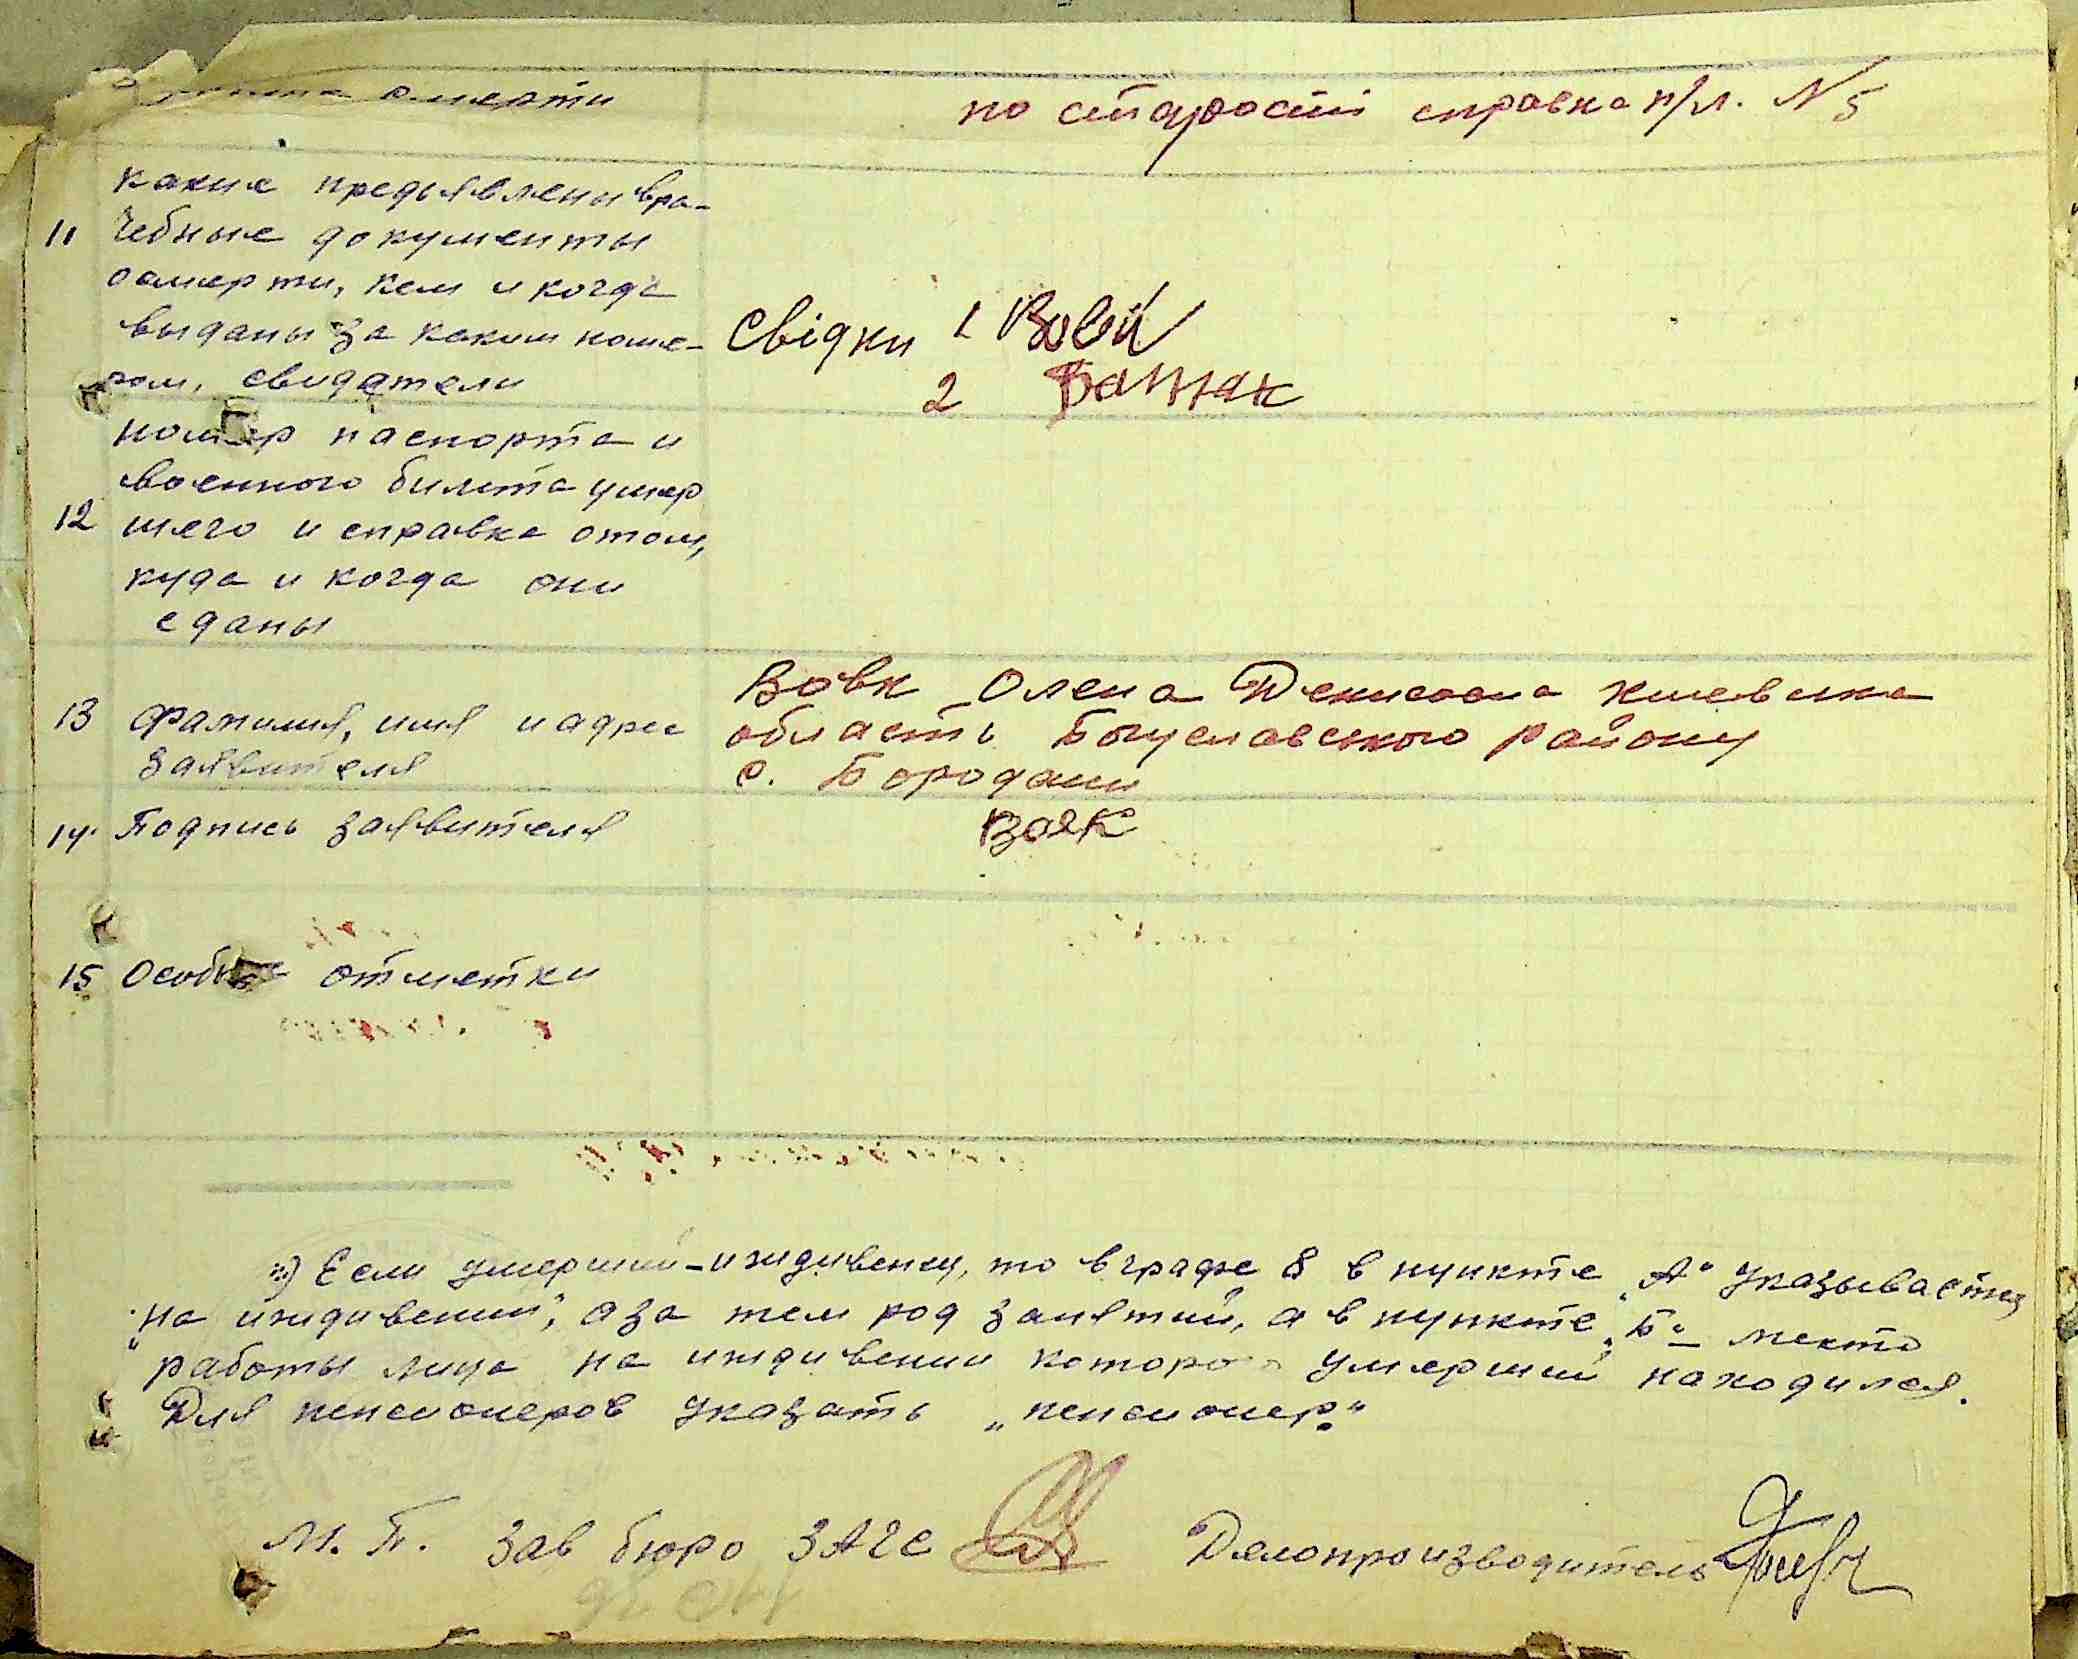 смерти
по старості справка п/л. N 5
какие предъявлены вра-
11 чебные документы
осмерти, кем и когда
выданы за каким номе-
ром, свидетели
Свідки 1 Вовк
2
номер паспорта и
военного билета умер
12 шего и справка отом,
куда и когда они
сданы
13 Фамилия, имя и адрес
заявителя
Вовк Олена Денисовна киевска
область Богуславського району
с. Бородани
14. Подпись заявителя
Вовк
15 Особые отметки
*) Если умерший-иждивенец, то в графе 8 в пункте „А" указывается
„на иждивении", аза тем род занятий, а в пункте „Б" - место
работы лица на иждивении которого умерший находился.
Для пенсионеров указать „пенсионер."
М. П. Зав бюро ЗАГС Делопроизводитель